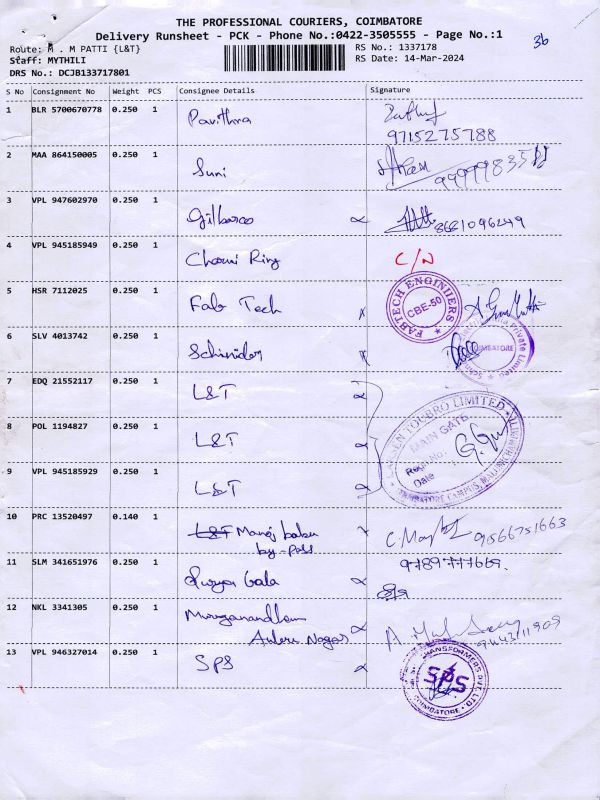 THE PROFESSIONAL COURIERS, COIMBATORE
Delivery Runsheet - PCK - Phone No.:0422-3505555 - Page No.:1
36
Route: M . M PATTI {L&T} RS No.: 1337178
Staff: MYTHILI RS Date: 14-Mar-2024
DRS No.: DCJB133717801
S No Consignment No Weight PCS Consignee Details Signature
1 BLR 5700670778 0.250 1 Pavithra
9715275788
2 MAA 864150005 0.250 1 Suni
3 VPL 947602970 0.250 1 Gilbarco
4 VPL 945185949 0.250 1 C/N
5 HSR 7112025 0.250 1 Fab Tech FABTECH ENGINEERS CBE-50
6 SLV 4013742 0.250 1 Schinider Private Limited COIMBATORE
7 EDQ 21552117 0.250 1 L&T
8 POL 1194827 0.250 1 L&T LARSEN TOUBRO LIMITED
MAIN GATE
Regn No:
Date
COIMBATORE CAMPUS,
9 VPL 945185929 0.250 1 L&T
10 PRC 13520497 0.140 1 L&T Manoj babu 9566751663
by-pass
11 SLM 341651976 0.250 1 Surya Gala 9789777669.
12 NKL 3341305 0.250 1 Muruganandham
Nagar
13 VPL 946327014 0.250 1 SPS
TRANSFORMERS PVT. LTD.
SPS
COIMBATORE